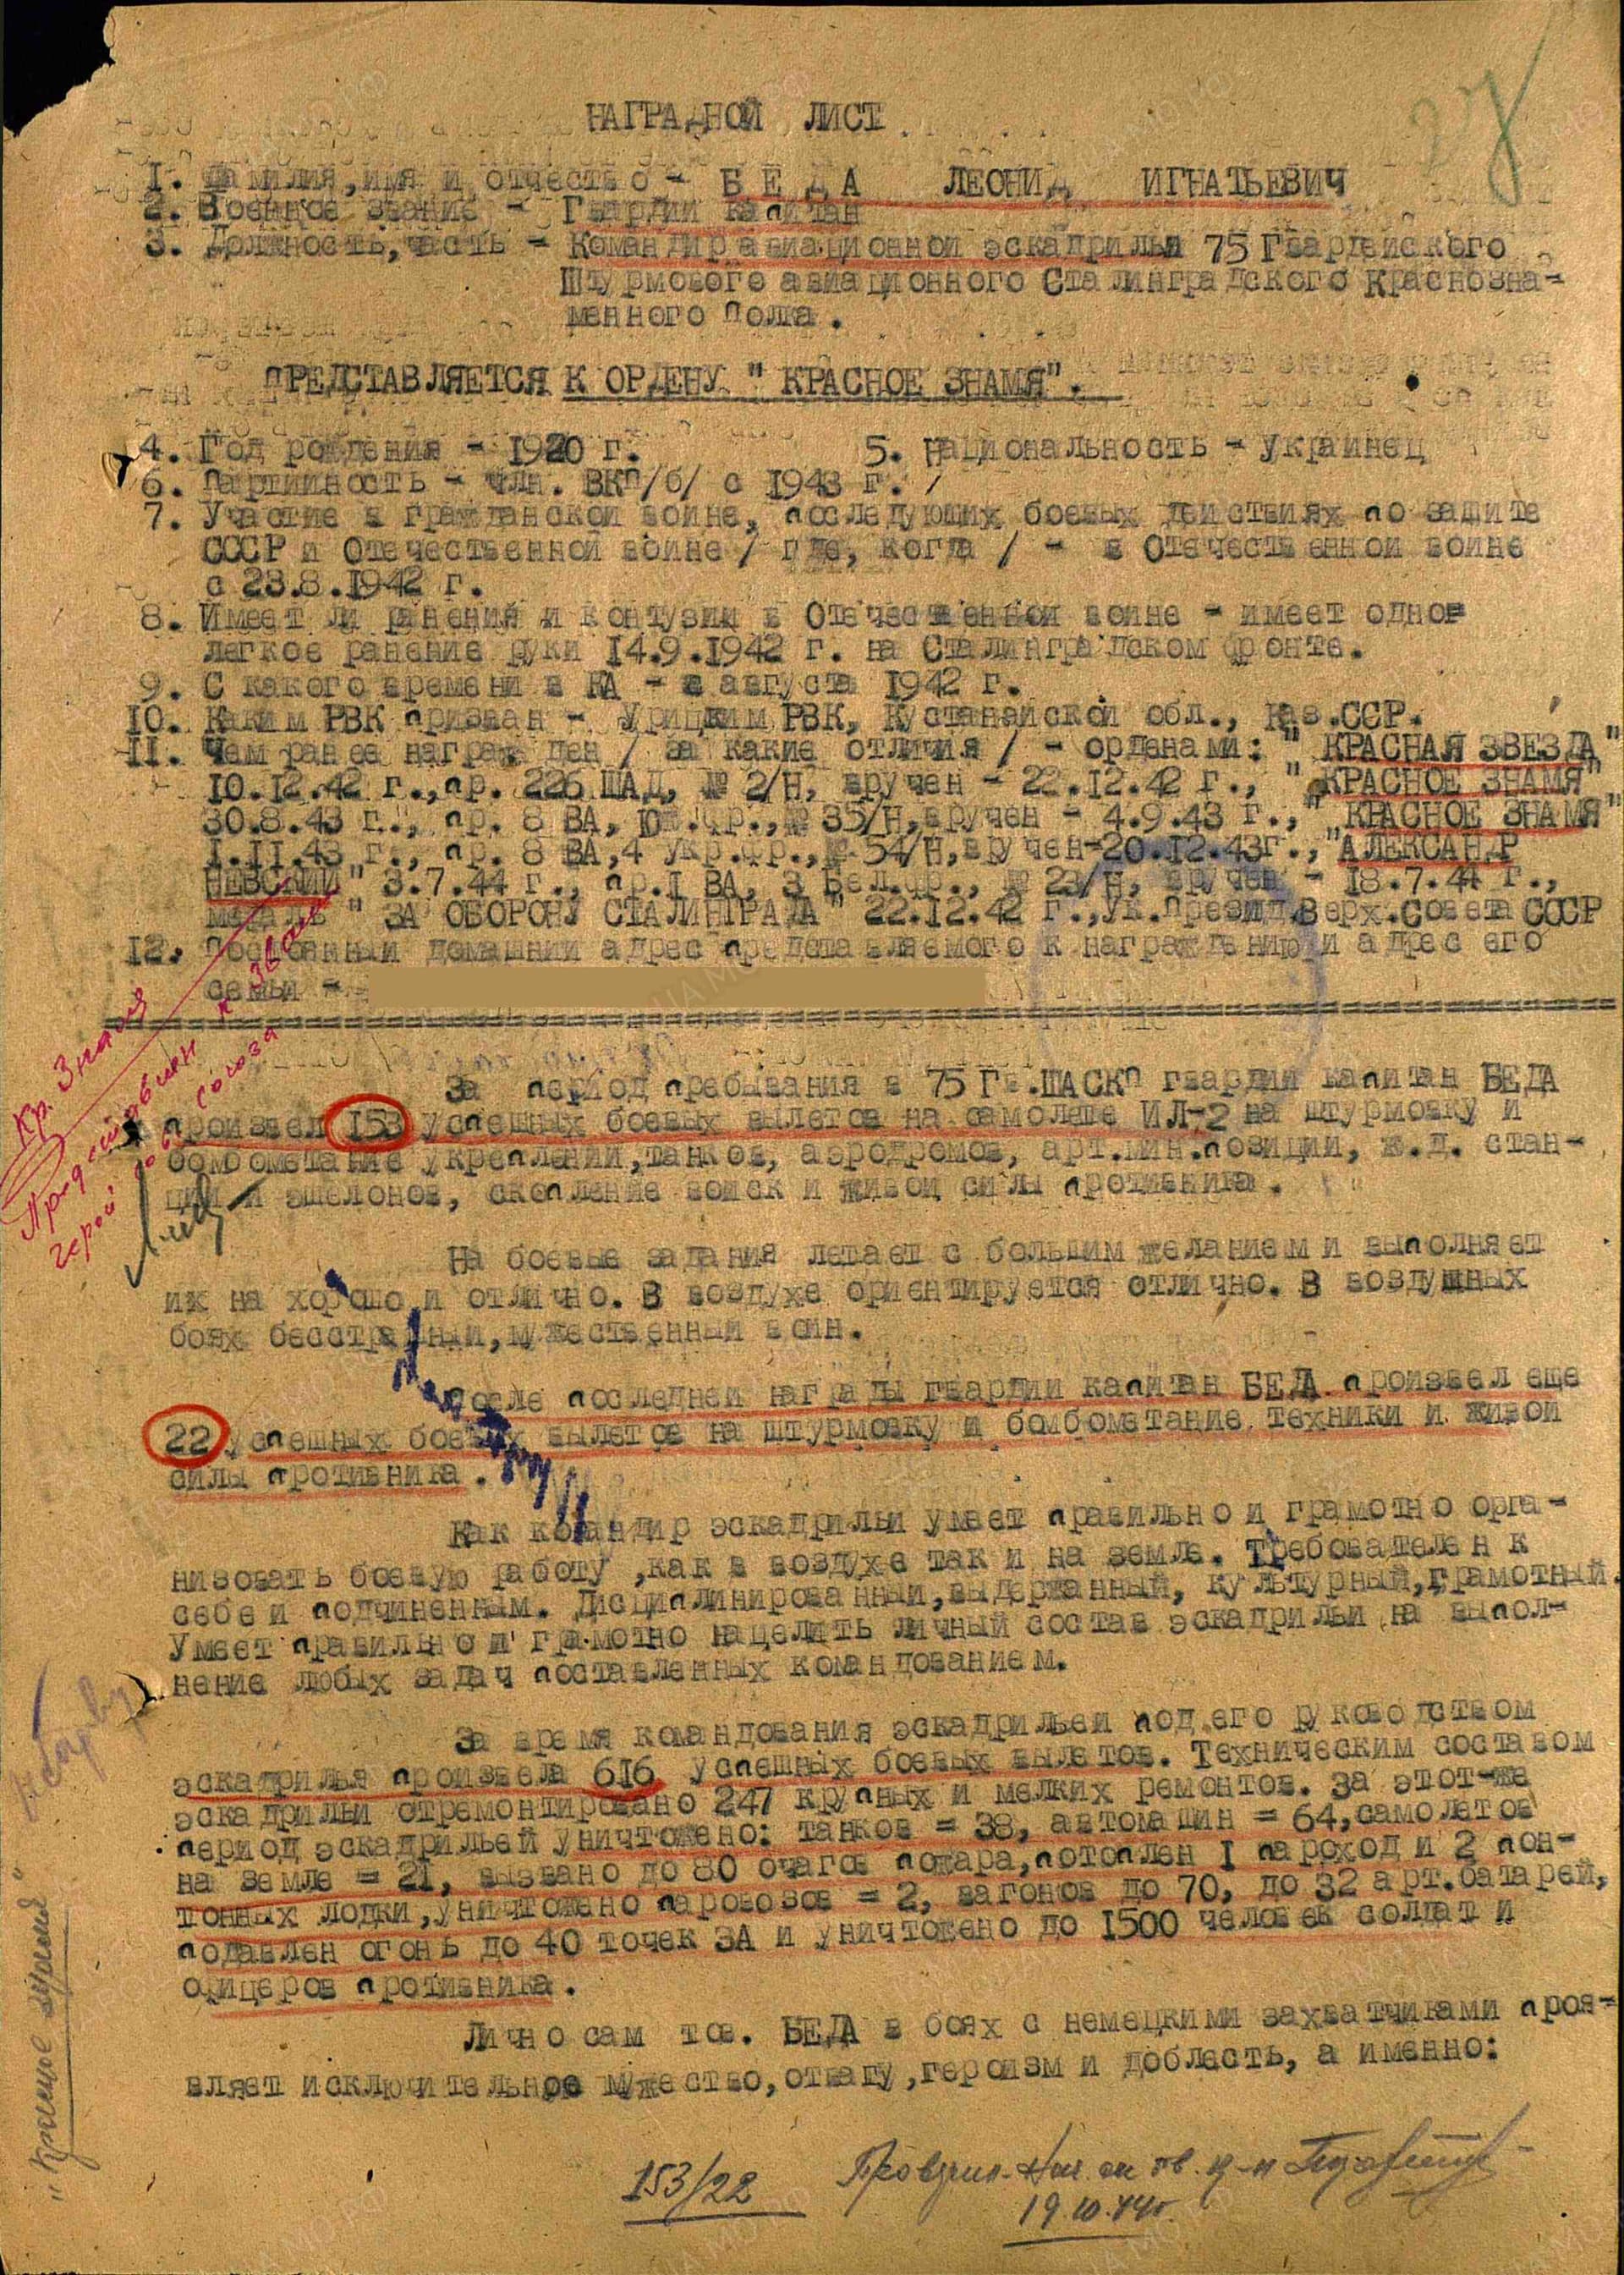 НАГРАДНОЙ ЛИСТ
1. Фамилия, имя и отчество - БЕДА ЛЕОНИД ИГНАТЬЕВИЧ
2. Военное звание - Гвардии капитан
3. Должность, часть - Командир авиационной эскадрильи 75 Гвардейского
Штурмового авиационного Сталинградского Краснозна-
менного полка.
ПРЕДСТАВЛЯЕТСЯ К ОРДЕНУ "КРАСНОЕ ЗНАМЯ".
4. Год рождения - 1920 г. 5. Национальность - украинец
6. Партийность - члн. ВКП/б/ с 1943 г.
7. Участие в гражданской войне, последующих боевых действиях по защите
СССР и Отечественной войне / где, когда / - в Отечественной войне
с 23.8.1942 г.
8. Имеет ли ранения и контузии в Отечественной войне - имеет одно
легкое ранение руки 14.9.1942 г. на Сталинградском фронте.
9. С какого времени в КА - с августа 1942 г.
10. Каким РВК призван - Урицким РВК, Кустанайской обл., Каз.ССР.
11. Чем ранее награжден / за какие отличия / - орденами: "КРАСНАЯ ЗВЕЗДА"
10.12.42 г., пр. 226 ШАД, № 2/Н, вручен - 22.12.42 г., "КРАСНОЕ ЗНАМЯ"
30.8.43 г., пр. 8 ВА, Юж.фр., № 35/Н, вручен - 4.9.43 г., "КРАСНОЕ ЗНАМЯ"
1.11.43 г., пр. 8 ВА, 4 Укр.фр., № 54/Н, вручен-20.12.43г., "АЛЕКСАНДР
НЕВСКИЙ" 3.7.44 г., пр.1 ВА, 3 Бел.фр., № 23/Н, вручен - 18.7.44 г.,
медаль "ЗА ОБОРОНУ СТАЛИНГРАДА" 22.12.42 г., Ук.Презид.Верх.Совета СССР
12. Постоянный домашний адрес представляемого к награждению и адрес его
семьи -
Кр. Знамя
Представлен к званию
Герой Советского Союза
За период пребывания в 75 Гв.ШАСКП гвардии капитан БЕДА
произвел 153 успешных боевых вылетов на самолете ИЛ-2 на штурмовку и
бомбометание укреплений, танков, аэродромов, арт.мин.позиции, ж.д. стан-
ций и эшелонов, скопление войск и живой силы противника.
На боевые задания летает с большим желанием и выполняет
их на хорошо и отлично. В воздухе ориентируется отлично. В воздушных
боях бесстрашный, мужественный воин.
После последней награды гвардии капитан БЕДА произвел еще
22 успешных боевых вылетов на штурмовку и бомбометание техники и живой
силы противника.
Как командир эскадрильи умеет правильно и грамотно орга-
низовать боевую работу, как в воздухе так и на земле. Требователен к
себе и подчиненным. Дисциплинированный, выдержанный, культурный, грамотный.
Умеет правильно и грамотно нацелить личный состав эскадрильи на выпол-
нение любых задач поставленных командованием.
За время командования эскадрильей под его руководством
эскадрилья произвела 616 успешных боевых вылетов. Техническим составом
эскадрильи отремонтировано 247 крупных и мелких ремонтов. За этот-же
период эскадрильей уничтожено: танков = 38, автомашин = 64, самолетов
на земле = 21, вызвано до 80 очагов пожара, потоплен 1 пароход и 2 пон-
тонных лодки, уничтожено паровозов = 2, вагонов до 70, до 32 арт.батарей,
подавлен огонь до 40 точек ЗА и уничтожено до 1500 человек солдат и
офицеров противника.
Лично сам тов. БЕДА в боях с немецкими захватчиками проя-
вляет исключительное мужество, отвагу, героизм и доблесть, а именно:
"Красное знамя"
153/22
19.10.44г.